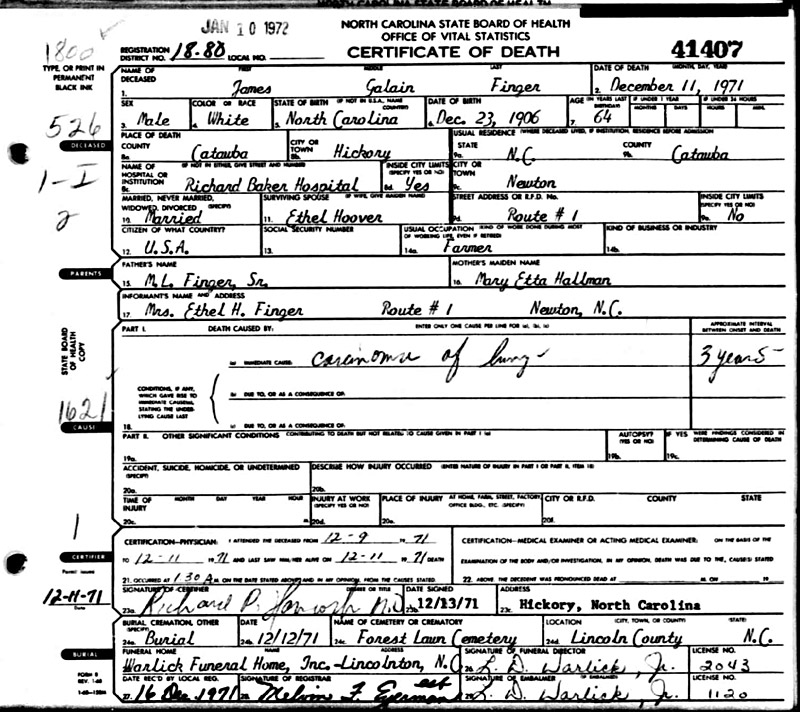 JAN 10 1972
NORTH CAROLINA STATE BOARD OF HEALTH
OFFICE OF VITAL STATISTICS
1800
REGISTRATION DISTRICT NO. 18-80 LOCAL NO.
CERTIFICATE OF DEATH
41407
TYPE, OR PRINT IN PERMANENT BLACK INK
NAME OF DECEASED FIRST MIDDLE LAST
1. James Galain Finger
DATE OF DEATH (MONTH, DAY, YEAR)
2. December 11, 1971
SEX
3. Male
COLOR OR RACE
4. White
STATE OF BIRTH (IF NOT IN U.S.A., NAME COUNTRY)
5. North Carolina
DATE OF BIRTH
6. Dec. 23, 1906
AGE (IN YEARS LAST BIRTHDAY)
7. 64
IF UNDER 1 YEAR
MONTHS DAYS
IF UNDER 24 HOURS
HOURS MIN.
526
DECEASED
PLACE OF DEATH
COUNTY
8a. Catawba
CITY OR TOWN
8b. Hickory
USUAL RESIDENCE (WHERE DECEASED LIVED, IF INSTITUTION, RESIDENCE BEFORE ADMISSION
STATE
9a. N.C.
COUNTY
9b. Catawba
1-I
2
NAME OF HOSPITAL OR INSTITUTION (IF NOT IN EITHER, GIVE STREET AND NUMBER)
8c. Richard Baker Hospital
INSIDE CITY LIMITS (SPECIFY YES OR NO)
8d. Yes
CITY OR TOWN
9c. Newton
MARRIED, NEVER MARRIED, WIDOWED, DIVORCED (SPECIFY)
10. Married
SURVIVING SPOUSE (IF WIFE, GIVE MAIDEN NAME)
11. Ethel Hoover
STREET ADDRESS OR R.F.D. No.
9d. Route #1
INSIDE CITY LIMITS (SPECIFY YES OR NO)
9e. No
CITIZEN OF WHAT COUNTRY?
12. U.S.A.
SOCIAL SECURITY NUMBER
13.
USUAL OCCUPATION (KIND OF WORK DONE DURING MOST OF WORKING LIFE, EVEN IF RETIRED)
14a. Farmer
KIND OF BUSINESS OR INDUSTRY
14b.
PARENTS
FATHER'S NAME
15. M.L. Finger, Sr.
MOTHER'S MAIDEN NAME
16. Mary Etta Hallman
INFORMANT'S NAME AND ADDRESS
17. Mrs. Ethel H. Finger Route #1 Newton, N.C.
STATE BOARD OF HEALTH COPY
PART I. DEATH CAUSED BY: ENTER ONLY ONE CAUSE PER LINE FOR (a), (b), (c)
APPROXIMATE INTERVAL BETWEEN ONSET AND DEATH
(a) IMMEDIATE CAUSE: carcinoma of lung
3 years
CONDITIONS, IF ANY, WHICH GAVE RISE TO IMMEDIATE CAUSE(a), STATING THE UNDERLYING CAUSE LAST
(b) DUE TO, OR AS A CONSEQUENCE OF:
1621
18. (c) DUE TO, OR AS A CONSEQUENCE OF:
CAUSE
PART II. OTHER SIGNIFICANT CONDITIONS CONTRIBUTING TO DEATH BUT NOT RELATED TO CAUSE GIVEN IN PART I (a)
19a.
AUTOPSY? (YES OR NO)
19b.
IF YES WERE FINDINGS CONSIDERED IN DETERMINING CAUSE OF DEATH
19c.
ACCIDENT, SUICIDE, HOMICIDE, OR UNDETERMINED (SPECIFY)
20a.
DESCRIBE HOW INJURY OCCURRED (ENTER NATURE OF INJURY IN PART I OR PART II, ITEM 18)
20b.
TIME OF INJURY MONTH DAY YEAR HOUR
20c. M
INJURY AT WORK (SPECIFY YES OR NO)
20d.
PLACE OF INJURY AT HOME, FARM, STREET, FACTORY, OFFICE BLDG., ETC. (SPECIFY)
20e.
CITY OR R.F.D. COUNTY STATE
20f.
1
CERTIFIER
CERTIFICATION-PHYSICIAN: I ATTENDED THE DECEASED FROM 12-9 1971
TO 12-11 1971 AND LAST SAW HIM/HER ALIVE ON 12-11 1971 DEATH
21. OCCURRED AT 1:30 A M. ON THE DATE STATED ABOVE, AND IN MY OPINION, FROM THE CAUSES STATED.
CERTIFICATION-MEDICAL EXAMINER OR ACTING MEDICAL EXAMINER: ON THE BASIS OF THE
EXAMINATION OF THE BODY AND/OR INVESTIGATION, IN MY OPINION, DEATH WAS DUE TO THE, CAUSE(S) STATED
22. ABOVE THE DECEDENT WAS PRONOUNCED DEAD AT M. ON 19
12-11-71
Date
SIGNATURE OF CERTIFIER DEGREE OR TITLE
23a. Richard P. M.D.
DATE SIGNED
23b. 12/13/71
ADDRESS
23c. Hickory, North Carolina
BURIAL, CREMATION, OTHER (SPECIFY)
24a. Burial
DATE
24b. 12/12/71
NAME OF CEMETERY OR CREMATORY
24c. Forest Lawn Cemetery
LOCATION (CITY, TOWN, OR COUNTY) (STATE)
24d. Lincoln County N.C.
BURIAL
FUNERAL HOME NAME ADDRESS
Warlick Funeral Home, Inc.-Lincolnton, N.C.
SIGNATURE OF FUNERAL DIRECTOR
L. D. Warlick, Jr.
LICENSE NO.
2043
FORM 8
REV. 1-68
DATE REC'D BY LOCAL REG.
27. 16 Dec 1971
SIGNATURE OF REGISTRAR
28. Melvin F. Eyerman
SIGNATURE OF EMBALMER
L. D. Warlick, Jr.
LICENSE NO.
1120